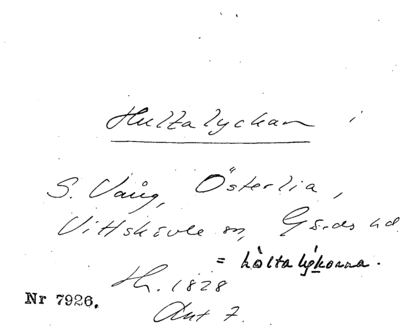 Hultalyckan i
S. Vång, Österlia,
Vittskövle sn, Gärds hd.
= hòltalýkorna.
Th. 1828
Nr 7926.
Akt 7.